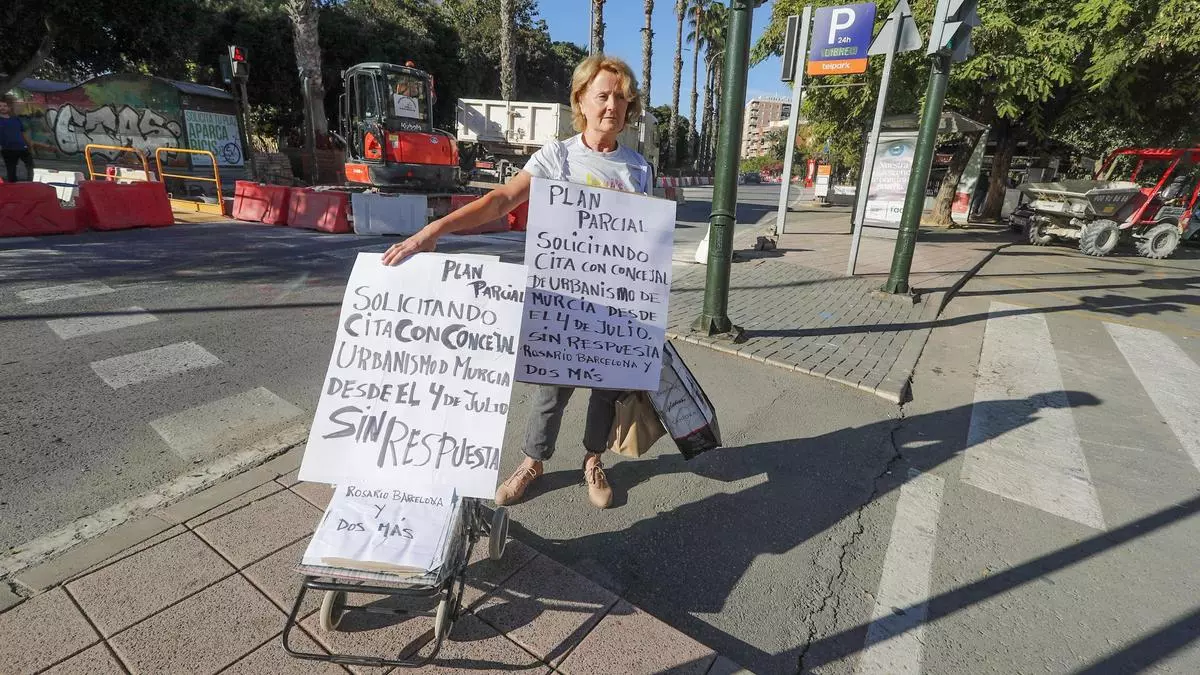 PLAN
PARCIAL
SOLICITANDO
CITA CON CONCEJAL
DE URBANISMO DE
MURCIA DESDE
EL 4 DE JULIO.
SIN RESPUESTA
ROSARIO BARCELONA Y
DOS MÁS.
PLAN
PARCIAL
SOLICITANDO
CITA CON CONCEJAL
URBANISMO D MURCIA
DESDE EL 4 DE JULIO
SIN RESPUESTA
ROSARIO BARCELONA
Y
DOS MÁS
P
24h
LIBRE
telpark
SOLICITA TU
APARCA
BICIS
Kubota